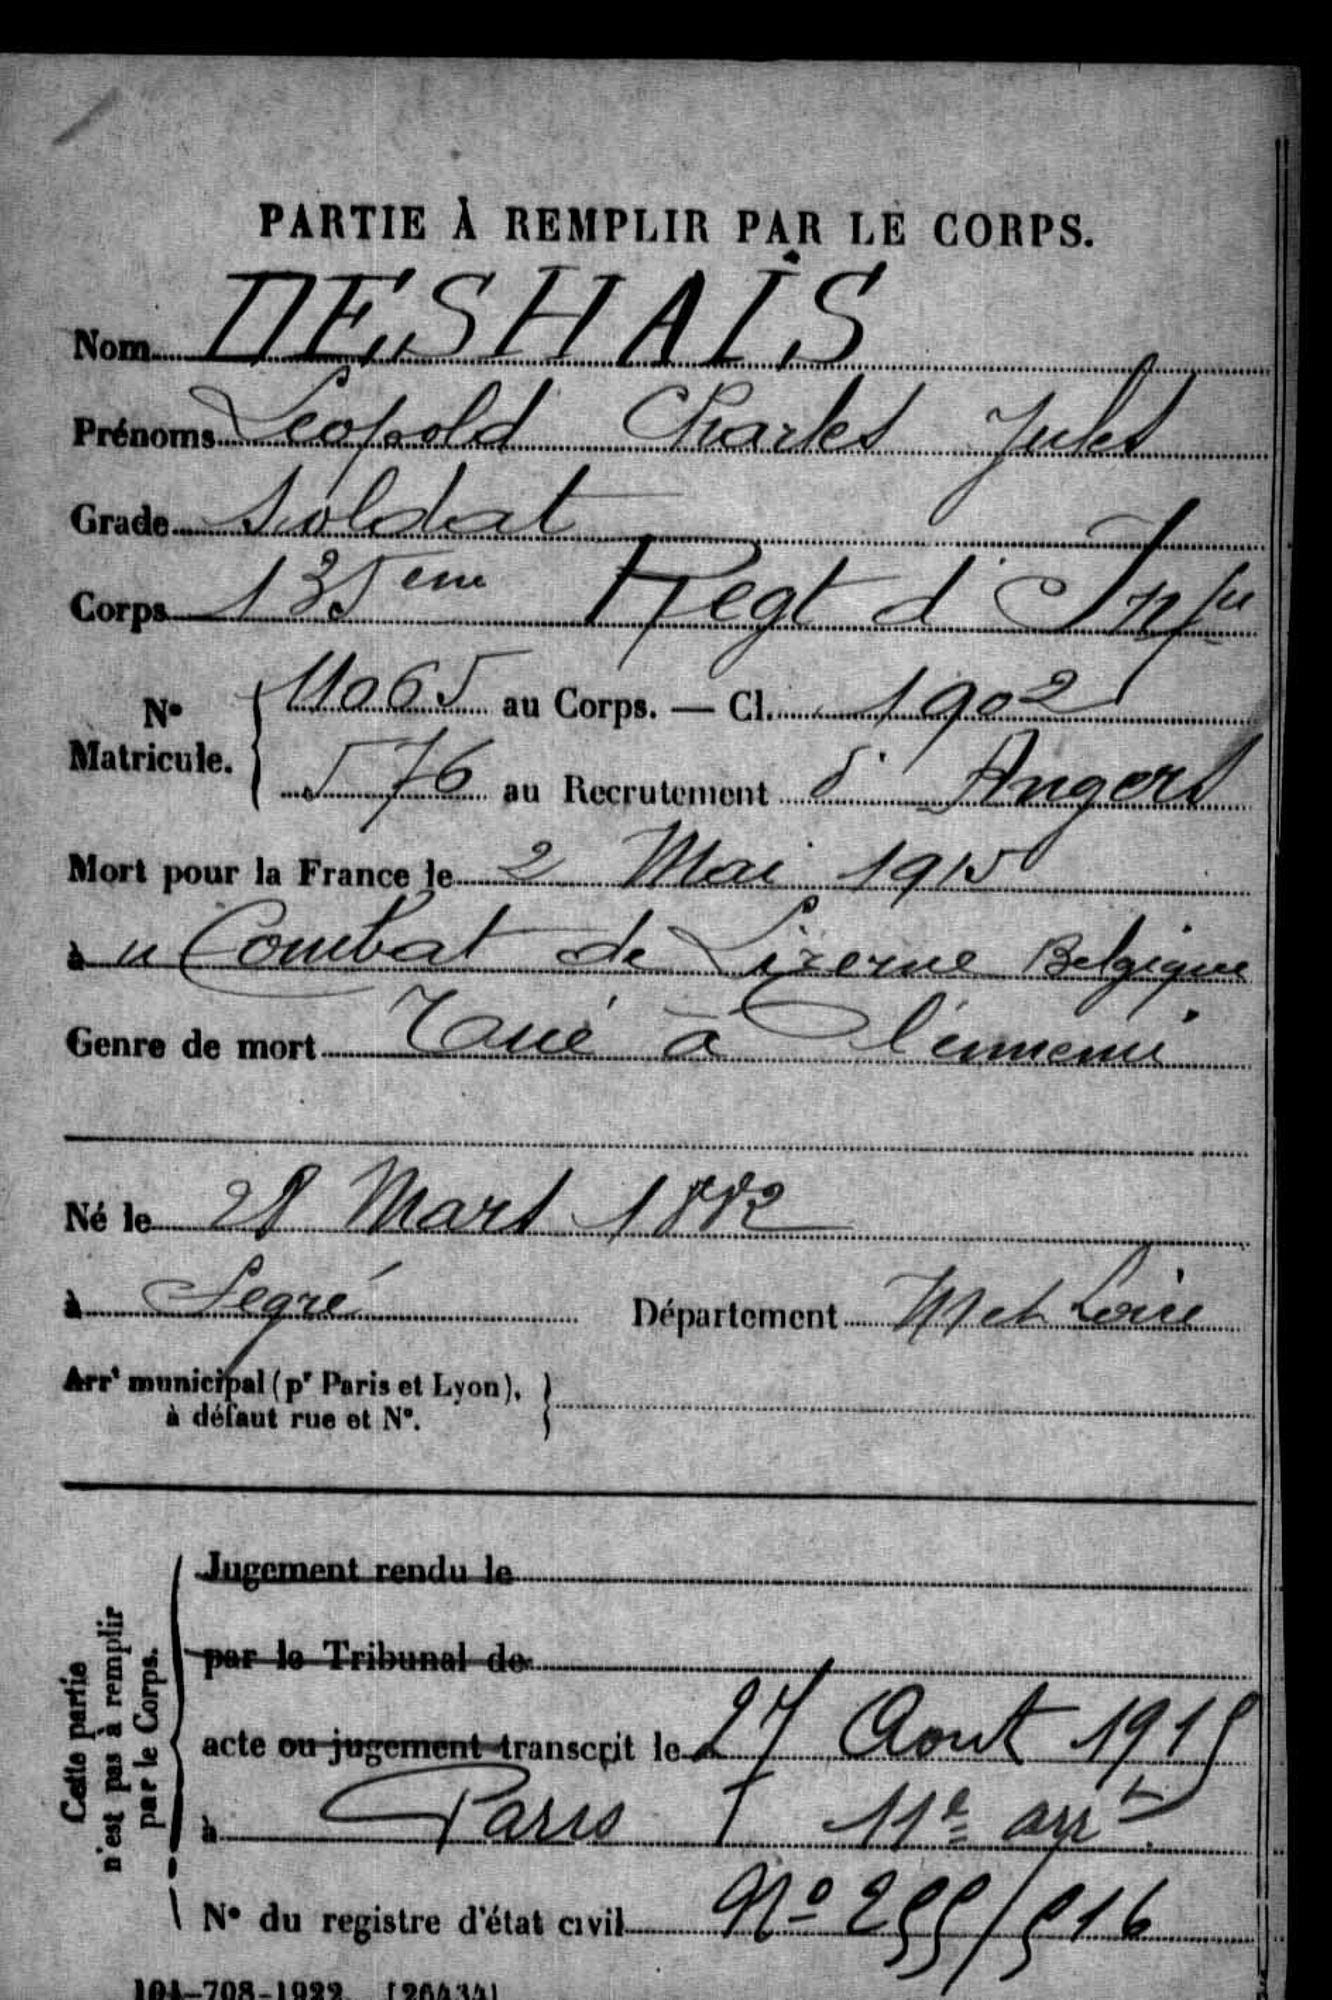 PARTIE À REMPLIR PAR LE CORPS.
Nom DESHAIS
Prénoms Léopold Charles Jules
Grade Soldat
Corps 135eme Regt d'Infie
No Matricule. { 11065 au Corps. — Cl. 1902
576 au Recrutement d'Angers
Mort pour la France le 2 Mai 1915
à u Combat de Lizerne Belgique
Genre de mort Tué à l'ennemi
Né le 28 Mars 1882
à Segré Département M et Loire
Arrt municipal (pr Paris et Lyon), }
à défaut rue et No.
Cette partie
n'est pas à remplir
par le Corps.
Jugement rendu le
par le Tribunal de
acte ou jugement transcrit le 27 Aout 1915
à Paris 11e arrt
No du registre d'état civil No 255/516
101-708-1922. [26434]